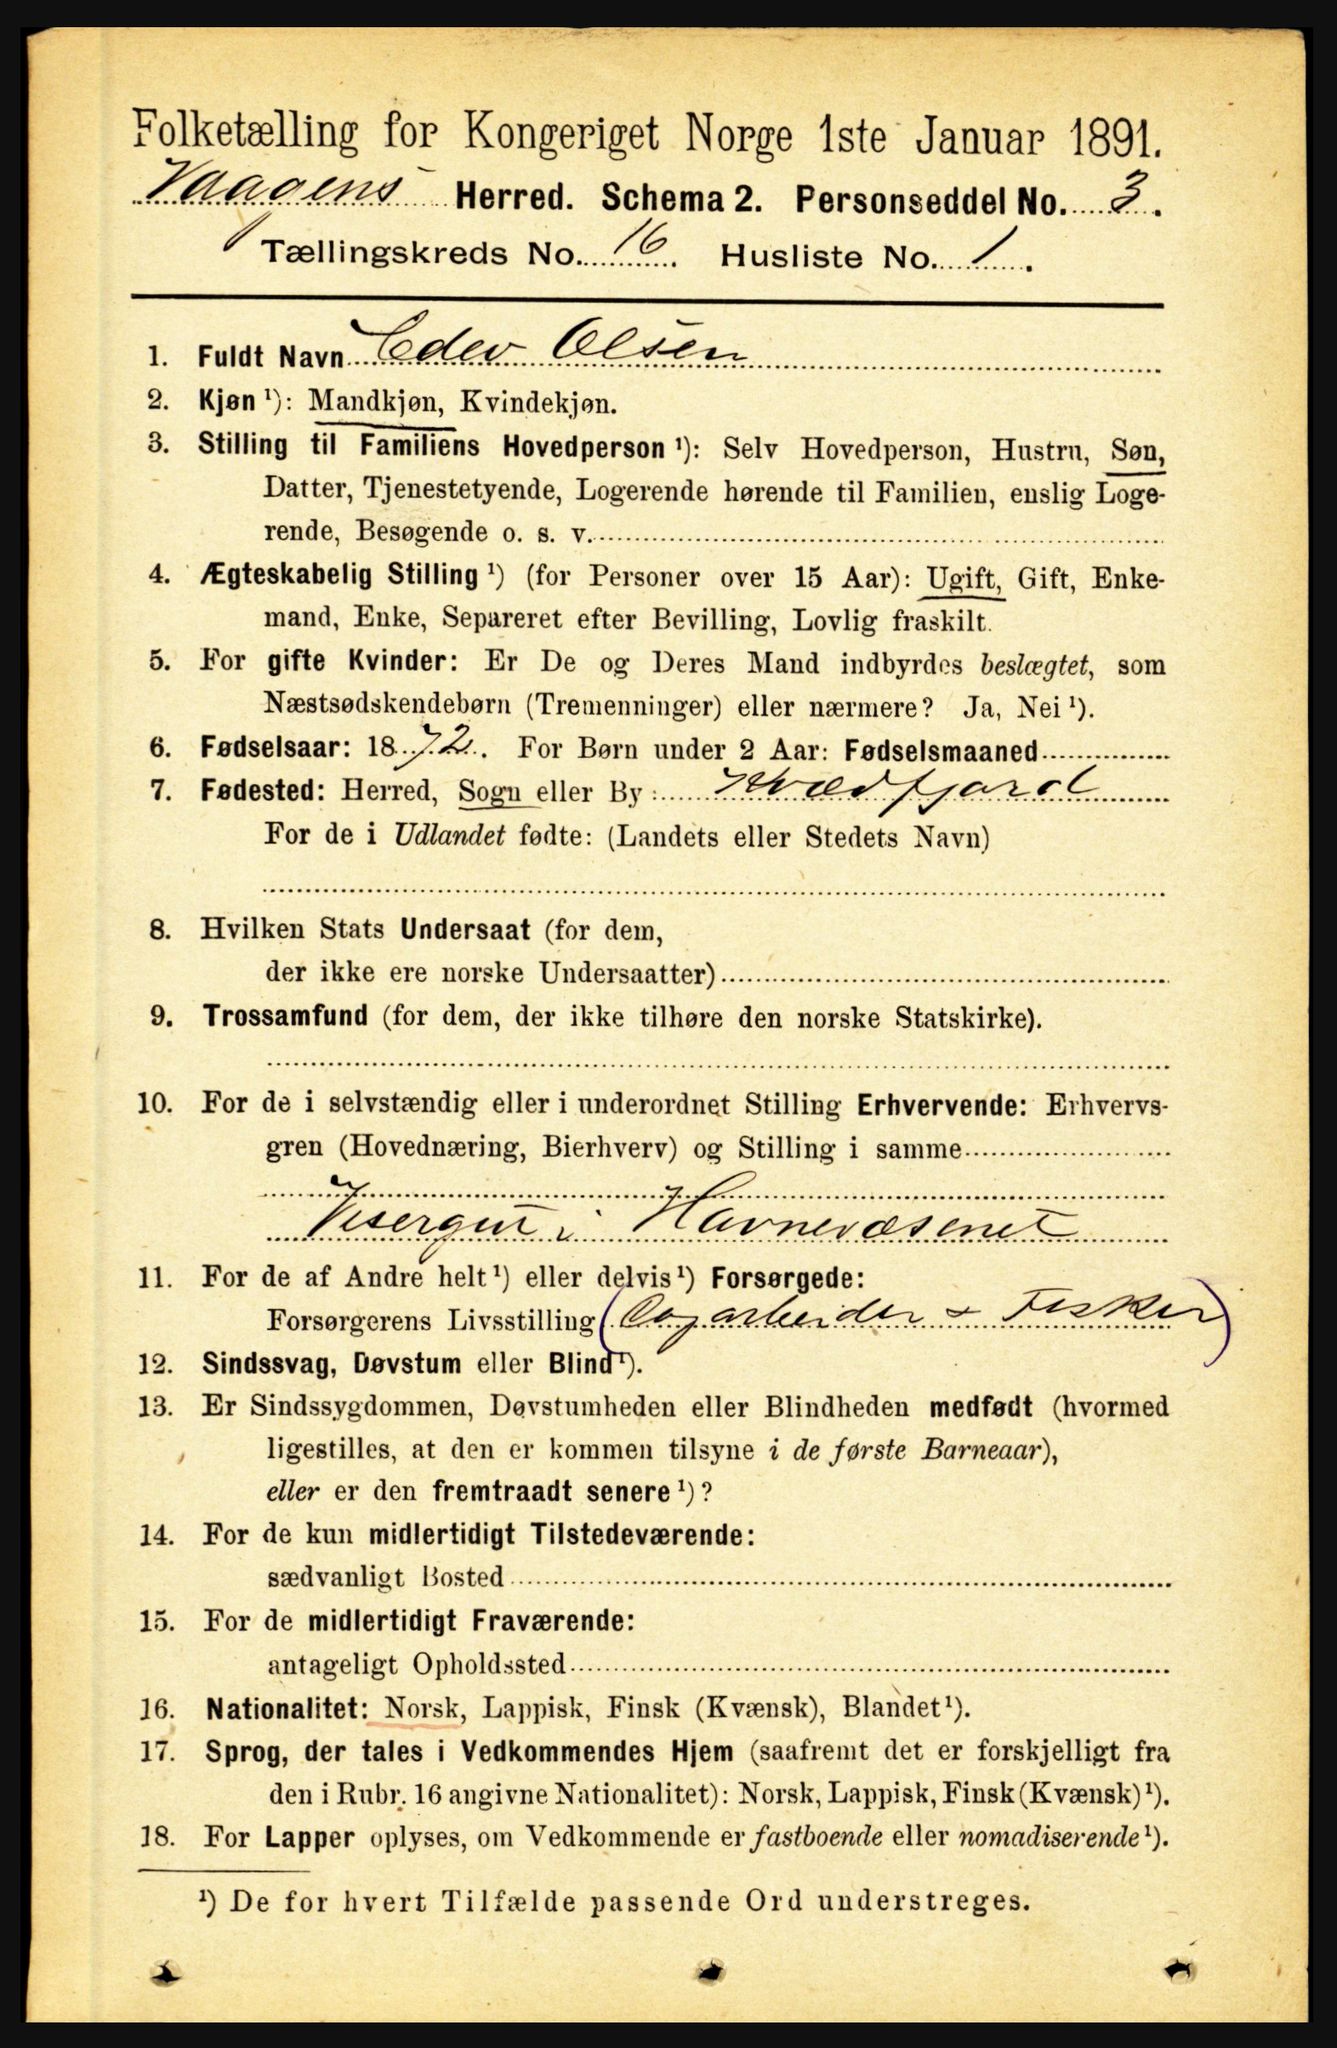 Folketælling for Kongeriget Norge 1ste Januar 1891.
Vaagens Herred. Schema 2. Personseddel No. 3.
Tællingskreds No. 16. Husliste No. 1.
1. Fuldt Navn Edev Olsen
2. Kjøn ¹): Mandkjøn, Kvindekjøn.
3. Stilling til Familiens Hovedperson ¹): Selv Hovedperson, Hustru, Søn,
Datter, Tjenestetyende, Logerende hørende til Familien, enslig Loge-
rende, Besøgende o. s. v.
4. Ægteskabelig Stilling ¹) (for Personer over 15 Aar): Ugift, Gift, Enke-
mand, Enke, Separeret efter Bevilling, Lovlig fraskilt.
5. For gifte Kvinder: Er De og Deres Mand indbyrdes beslægtet, som
Næstsødskendebørn (Tremenninger) eller nærmere? Ja, Nei ¹).
6. Fødselsaar: 1872. For Børn under 2 Aar: Fødselsmaaned
7. Fødested: Herred, Sogn eller By: Kvædfjord
For de i Udlandet fødte: (Landets eller Stedets Navn)
8. Hvilken Stats Undersaat (for dem,
der ikke ere norske Undersaatter)
9. Trossamfund (for dem, der ikke tilhøre den norske Statskirke).
10. For de i selvstændig eller i underordnet Stilling Erhvervende: Erhvervs-
gren (Hovednæring, Bierhverv) og Stilling i samme
Visergut i Havnevæsenet
11. For de af Andre helt ¹) eller delvis ¹) Forsørgede:
Forsørgerens Livsstilling (Dagarbeider & Fisker)
12. Sindssvag, Døvstum eller Blind ¹).
13. Er Sindssygdommen, Døvstumheden eller Blindheden medfødt (hvormed
ligestilles, at den er kommen tilsyne i de første Barneaar),
eller er den fremtraadt senere ¹)?
14. For de kun midlertidigt Tilstedeværende:
sædvanligt Bosted
15. For de midlertidigt Fraværende:
antageligt Opholdssted
16. Nationalitet: Norsk, Lappisk, Finsk (Kvænsk), Blandet ¹).
17. Sprog, der tales i Vedkommendes Hjem (saafremt det er forskjelligt fra
den i Rubr. 16 angivne Nationalitet): Norsk, Lappisk, Finsk (Kvænsk) ¹).
18. For Lapper oplyses, om Vedkommende er fastboende eller nomadiserende ¹).
¹) De for hvert Tilfælde passende Ord understreges.